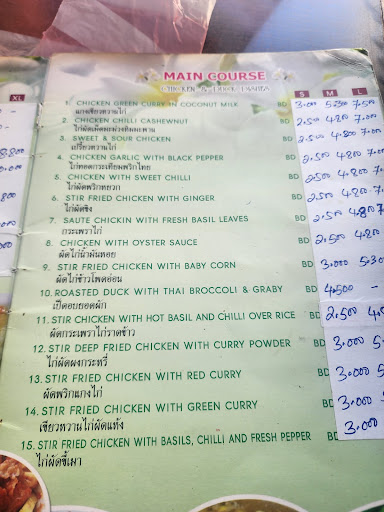 MAIN COURSE
XL
S M L
1. CHICKEN GREEN CURRY IN COCONUT MILK BD 3.000
แกงเขียวหวานไก่
2. CHICKEN CHILLI CASHEWNUT BD 2.500 4.800 7.000
ไก่ผัดเม็ดมะม่วงหิมพะพาน
3. SWEET & SOUR CHICKEN BD 2.500 4.800 7.000
เปรี้ยวหวานไก่
4. CHICKEN GARLIC WITH BLACK PEPPER BD 2.500 4.800
ไก่ทอดกระเทียมพริกไทย
5. CHICKEN WITH SWEET CHILLI BD 2.500 4.800
ไก่ผัดพริกหยวก
6. STIR FRIED CHICKEN WITH GINGER BD 2.500 4.800
ไก่ผัดขิง
7. SAUTE CHICKIN WITH FRESH BASIL LEAVES BD 2.500 4.800
กระเพราไก่
8. CHICKEN WITH OYSTER SAUCE BD 2.500 4.800
ผัดไก่น้ำมันหอย
9. STIR FRIED CHICKEN WITH BABY CORN BD 3.000 5.30
ผัดไก่ข้าวโพดอ่อน
10. ROASTED DUCK WITH THAI BROCCOLI & GRABY BD 4.500 -
เป็ดอบยอดผัก
11. STIR CHICKEN WITH HOT BASIL AND CHILLI OVER RICE BD 2.500 4.8
ผัดกระเพราไก่ราดข้าว
12. STIR DEEP FRIED CHICKEN WITH CURRY POWDER BD 3.000 5
ไก่ผัดผงกระหรี่
13. STIR FRIED CHICKEN WITH RED CURRY BD 3.000 5
ผัดพริกแกงไก่
14. STIR FRIED CHICKEN WITH GREEN CURRY BD 3.000
เขียวหวานไก่ผัดแห้ง
15. STIR FRIED CHICKEN WITH BASILS, CHILLI AND FRESH PEPPER BD 3.000
ไก่ผัดขี้เมา